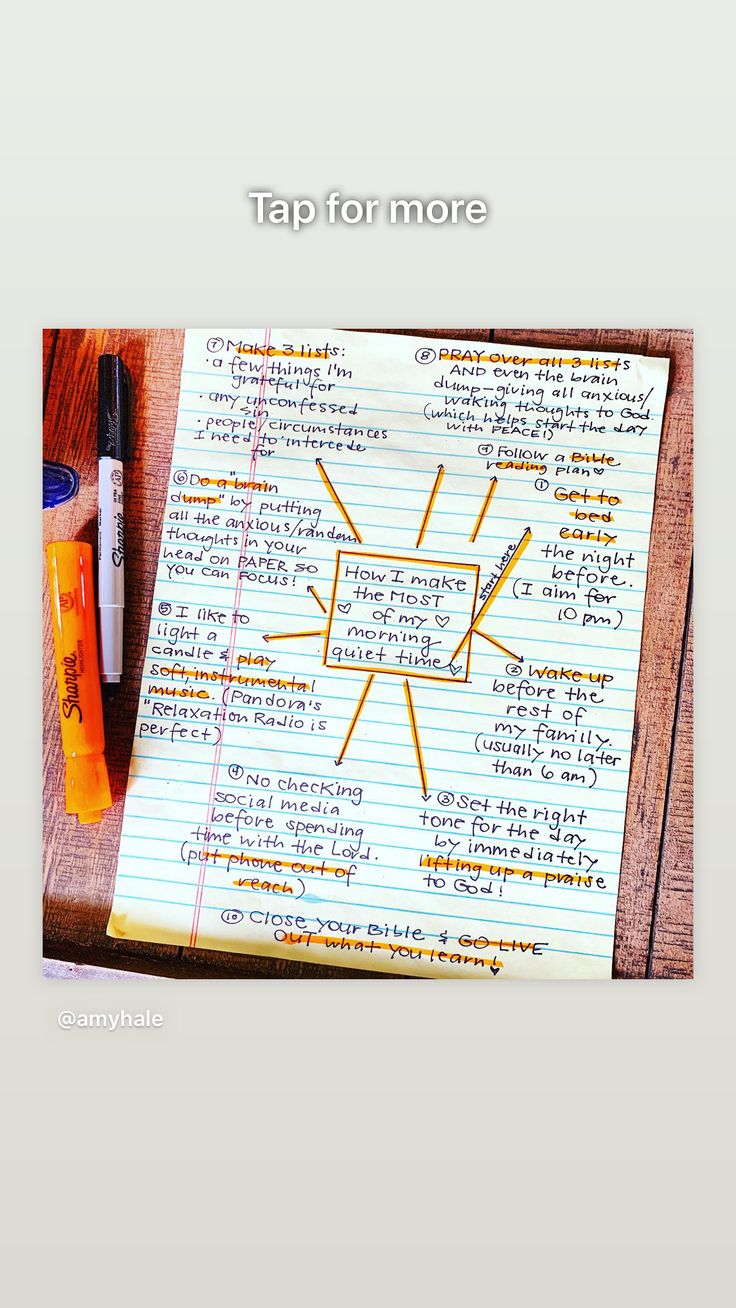 Tap for more
⑦ Make 3 lists:
• a few things I'm
grateful for
• any unconfessed
sin
• people/circumstances
I need to intercede
for
⑧ PRAY over all 3 lists
AND even the brain
dump—giving all anxious/
waking thoughts to God
(which helps start the day
with PEACE!)
⑨ Follow a Bible
reading plan♡
① Get to
bed
early
the night
before.
(I aim for
10 pm)
⑥ Do a "brain
dump" by putting
all the anxious/random
thoughts in your
head on PAPER SO
you can FOCUS!
start here
How I make
the MOST
♡ of my ♡
morning
quiet time♡
⑤ I like to
light a
candle & play
soft, instrumental
music. (Pandora's
"Relaxation Radio is
perfect)
② Wake up
before the
rest of
my familly.
(usually no later
than 6 am)
④ No checking
social media
before spending
time with the Lord.
(put phone out of
reach)
③ Set the right
tone for the day
by immediately
lifting up a praise
to God!
⑩ Close your Bible & GO LIVE
OUT what you learn!
♥
Sharpie
Sharpie
HIGHLIGHTER
@amyhale